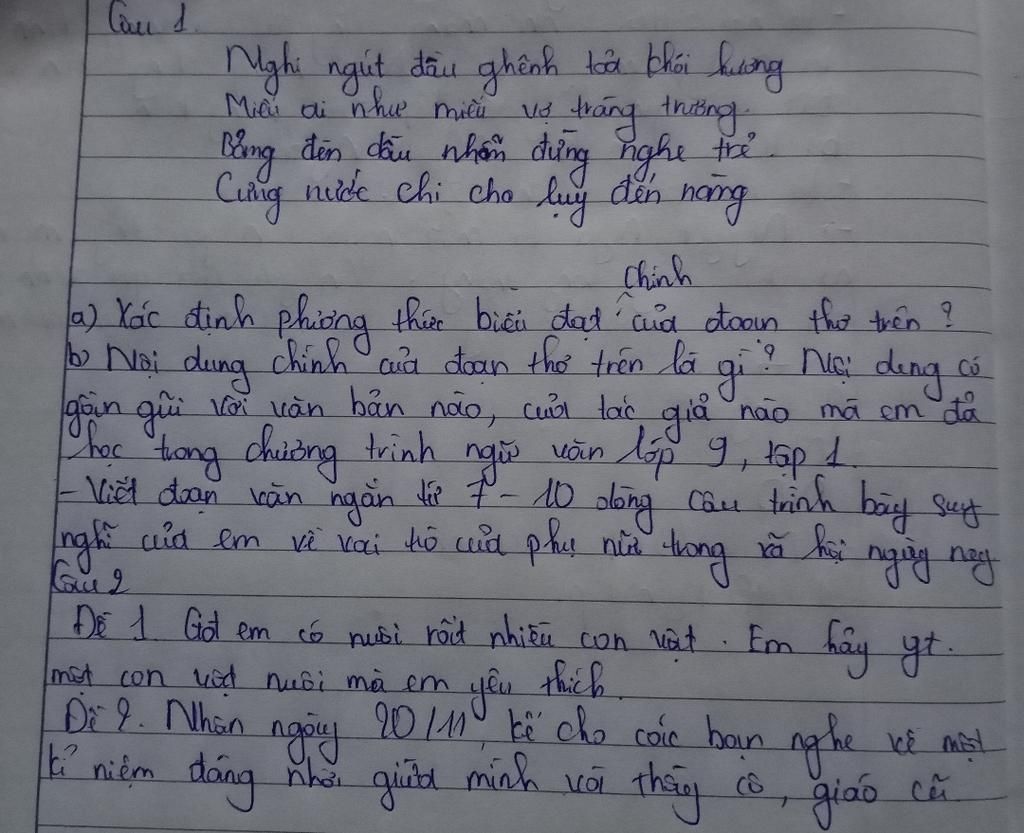 Câu 1.
Nghi ngút đầu ghềnh toả khói hương
Miếu ai như miếu vợ tràng trương.
Bóng đèn dầu nhẫn đừng nghe trẻ.
Cung nước chi cho lụy đến nàng
chính
a) Xác định phương thức biểu đạt ^ của đoạn thơ trên ?
b) Nội dung chính của đoạn thơ trên là gì ? Nội dung có
gần gũi với văn bản nào, của tác giả nào mà em đã
học trong chương trình ngữ văn lớp 9, tập 1.
- Viết đoạn văn ngắn từ 7 - 10 dòng câu trình bày suy
nghĩ của em về vai trò của phụ nữ trong xã hội ngày nay
Câu 2
Đề 1 Gđ em có nuôi rất nhiều con vật. Em hãy gt.
một con vật nuôi mà em yêu thích.
Đề 2. Nhân ngày 20/11, kể cho các bạn nghe về một
kỉ niệm đáng nhớ giữa mình với thầy cô, giáo cũ